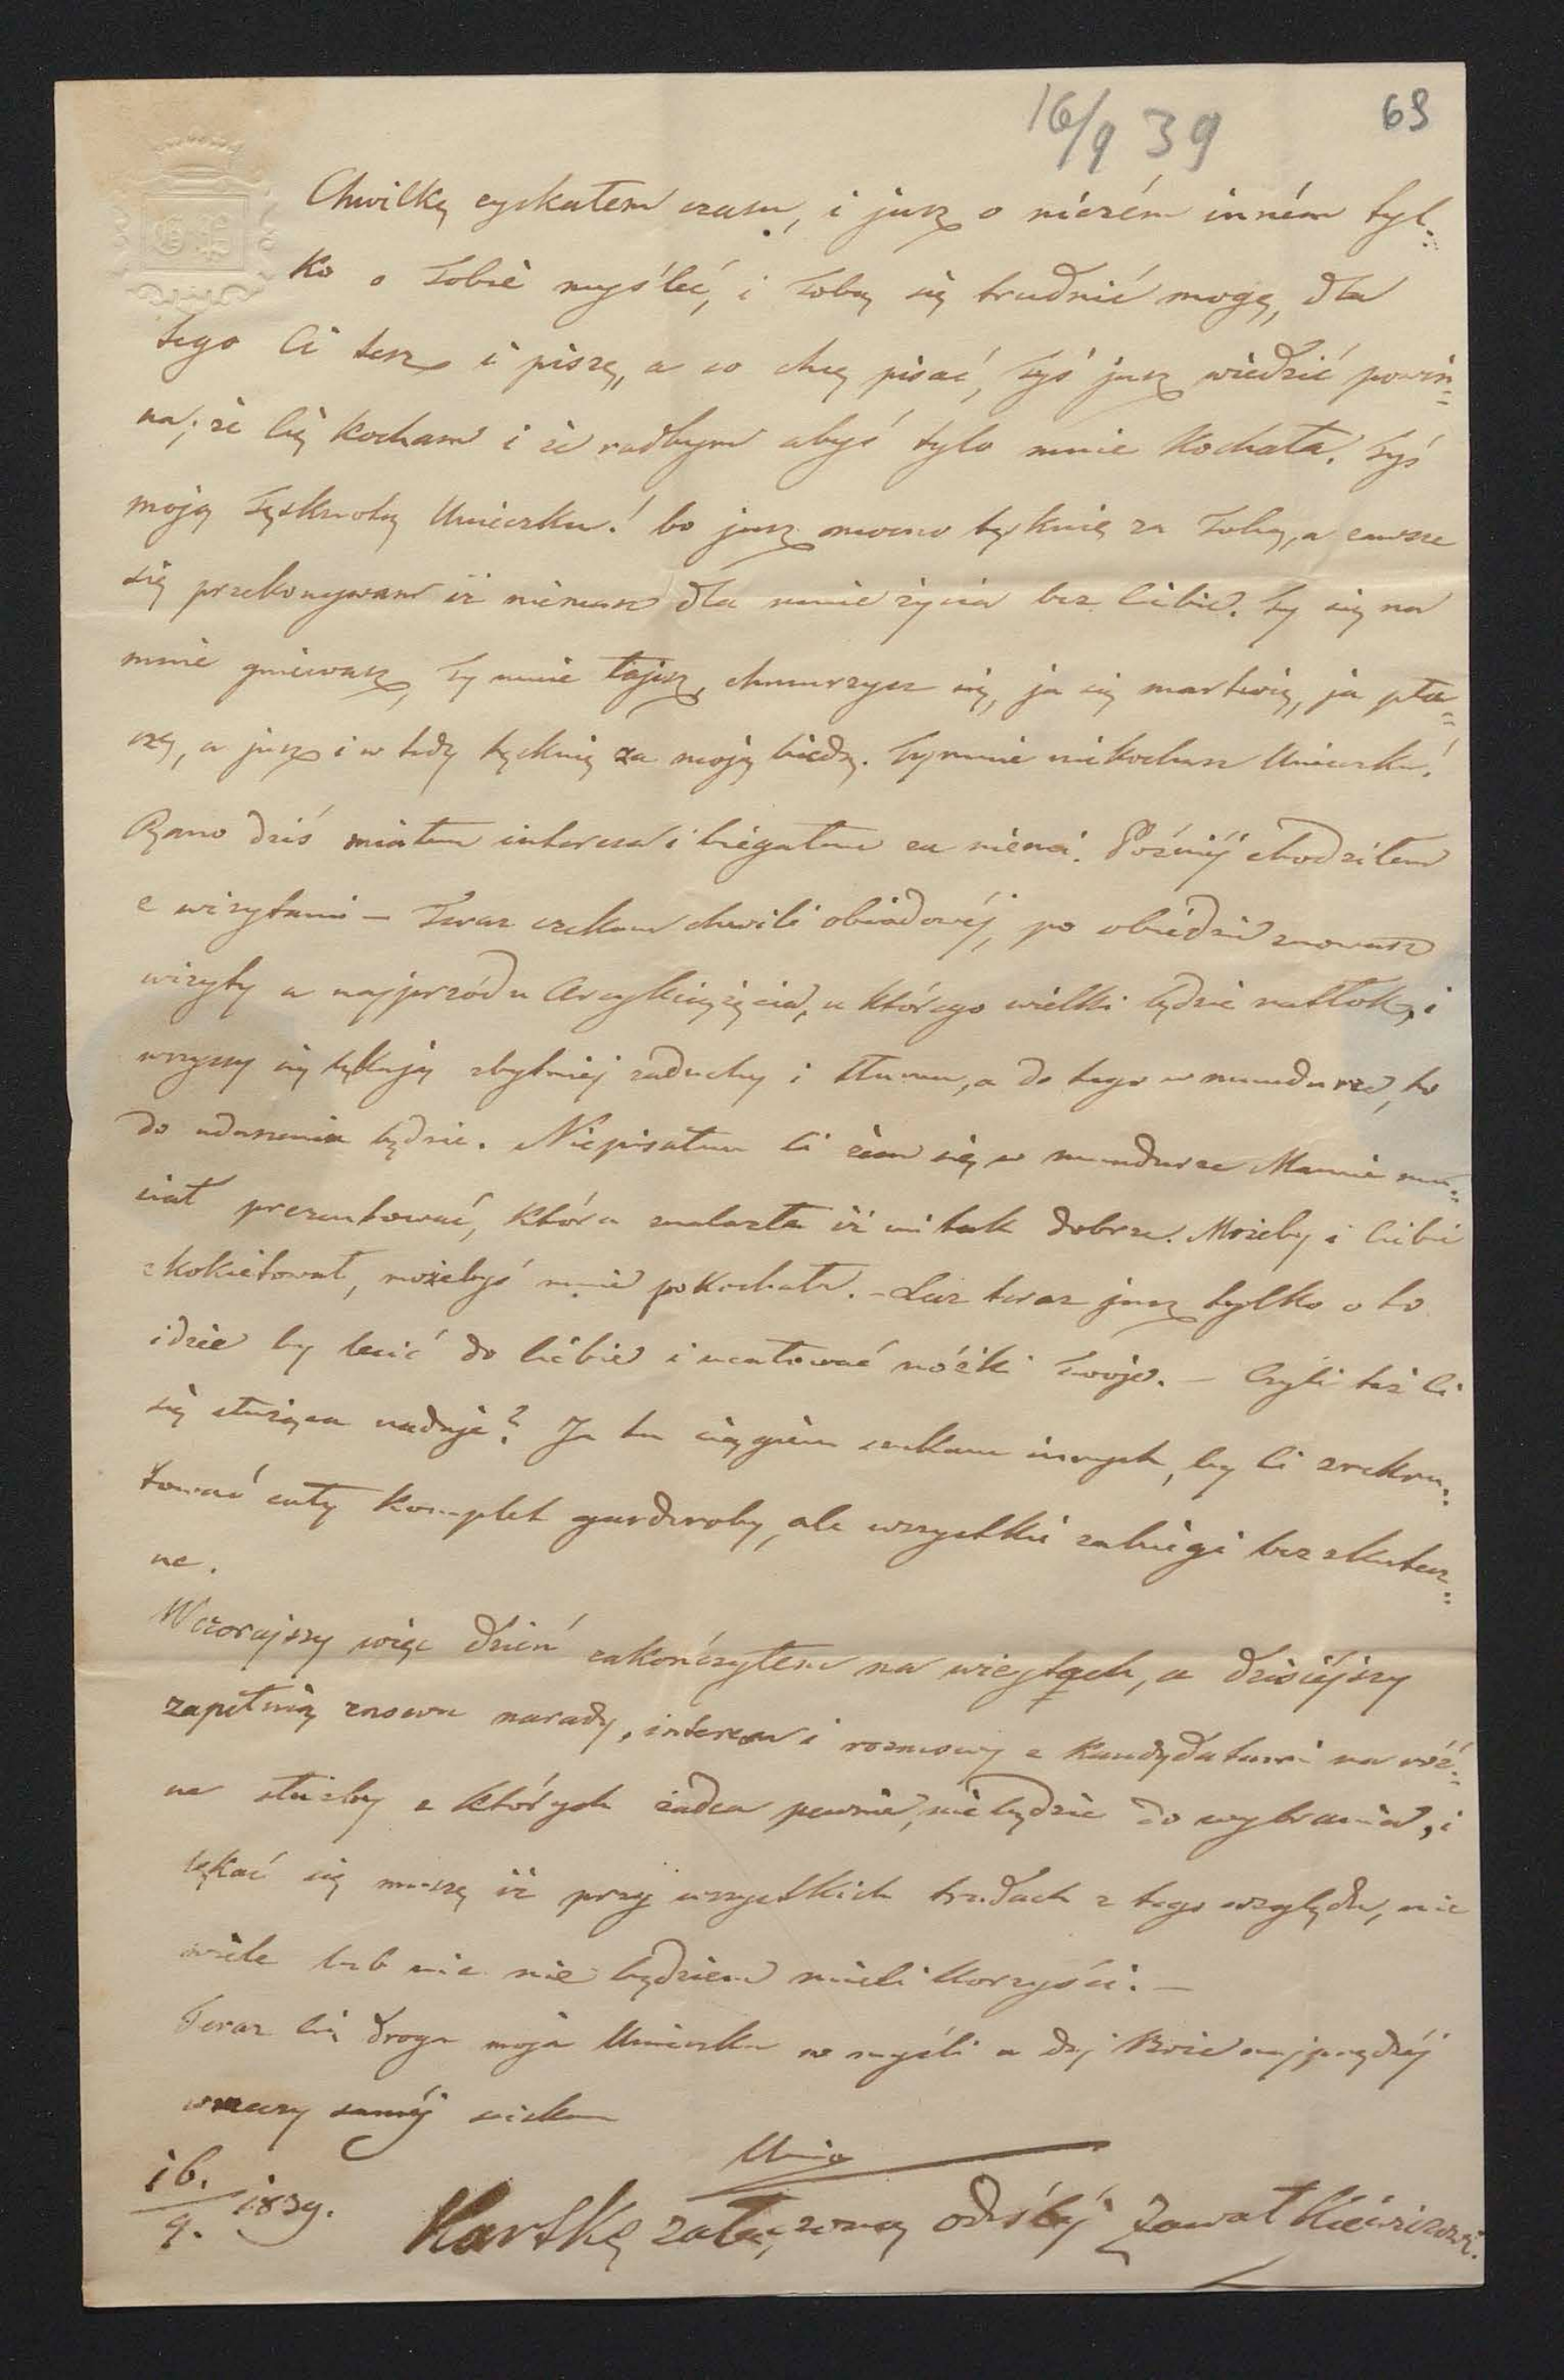 16/9 39
69
Chwilkę zyskałem czasu, i jusz o niczém inném tyl=
ko o Tobie myśleć, i Tobą się trudnić mogę, dla
tego Ci tesz i piszę, a co chcę pisać, Tyś jusz wiedzić powin=
na; że Cię kocham i że radbym abyś tylo mnie kochała. Tyś
moją Tęsknotą Unieczku! bo jusz mocno tęsknię za Tobą, a zawsze
się przekonywam iż niemasz dla mnie życia bez Ciebie. Ty się na
mnie gniewasz, Ty mnie łajesz, chmurzysz się, ja się martwię, ja pła=
czę, a jusz i w tedy tęsknię za moją biedą. Ty mnie niekochasz Unieczku!
Rano dziś miałem interesa i biegałem za niemi. Poźniéj chodziłem
z wizytami – Teraz czekam chwili obiadowéj, po obiedzie znowusz
wizyty a najprzód u Arcyksięzięcia, u którego wielki będzie natłok, i
wszyscy się lękają zbytniej zaduchy i tłumu, a do tego w mundurze, to
do uduszenia będzie. Niepisałem Ci żem się w mundurze Mamie mu=
siał prezentować, która znalazła iż mi tak dobrze. Możeby i Ciebie
zkokietował, możebyś mnie pokochała. – Lecz teraz jusz tylko o to
idzie by lecić do Ciebie i ucałować nóżki Twoje. – Czyli też Ci
się służąca nadaje? Ja tu ciągiem szukam innych, by Ci zrekru=
tować cały komplet garderoby, ale wszystkie zabiegi bezskutecz=
ne.
Wczorajszy więc dzień zakończyłem na wizytach, a dzisiéjszy
zapełnią znowu narady, interesa i rozmowy z kandydatami na róż=
ne służby z których żadca pewnie, nie będzie do wybrania, i
lękać się muszę iż przy wszystkich trudach z tego względu, nie
wiele lub nic nie będziem mieli korzyści. –
Teraz Cię droga moja Unieczku w myśli a daj Boże najprędzéj
w rzeczy saméj ściskam
16. / 9. 1839.
Kartkę załączoną odeślij Zawałkiewiczowi.